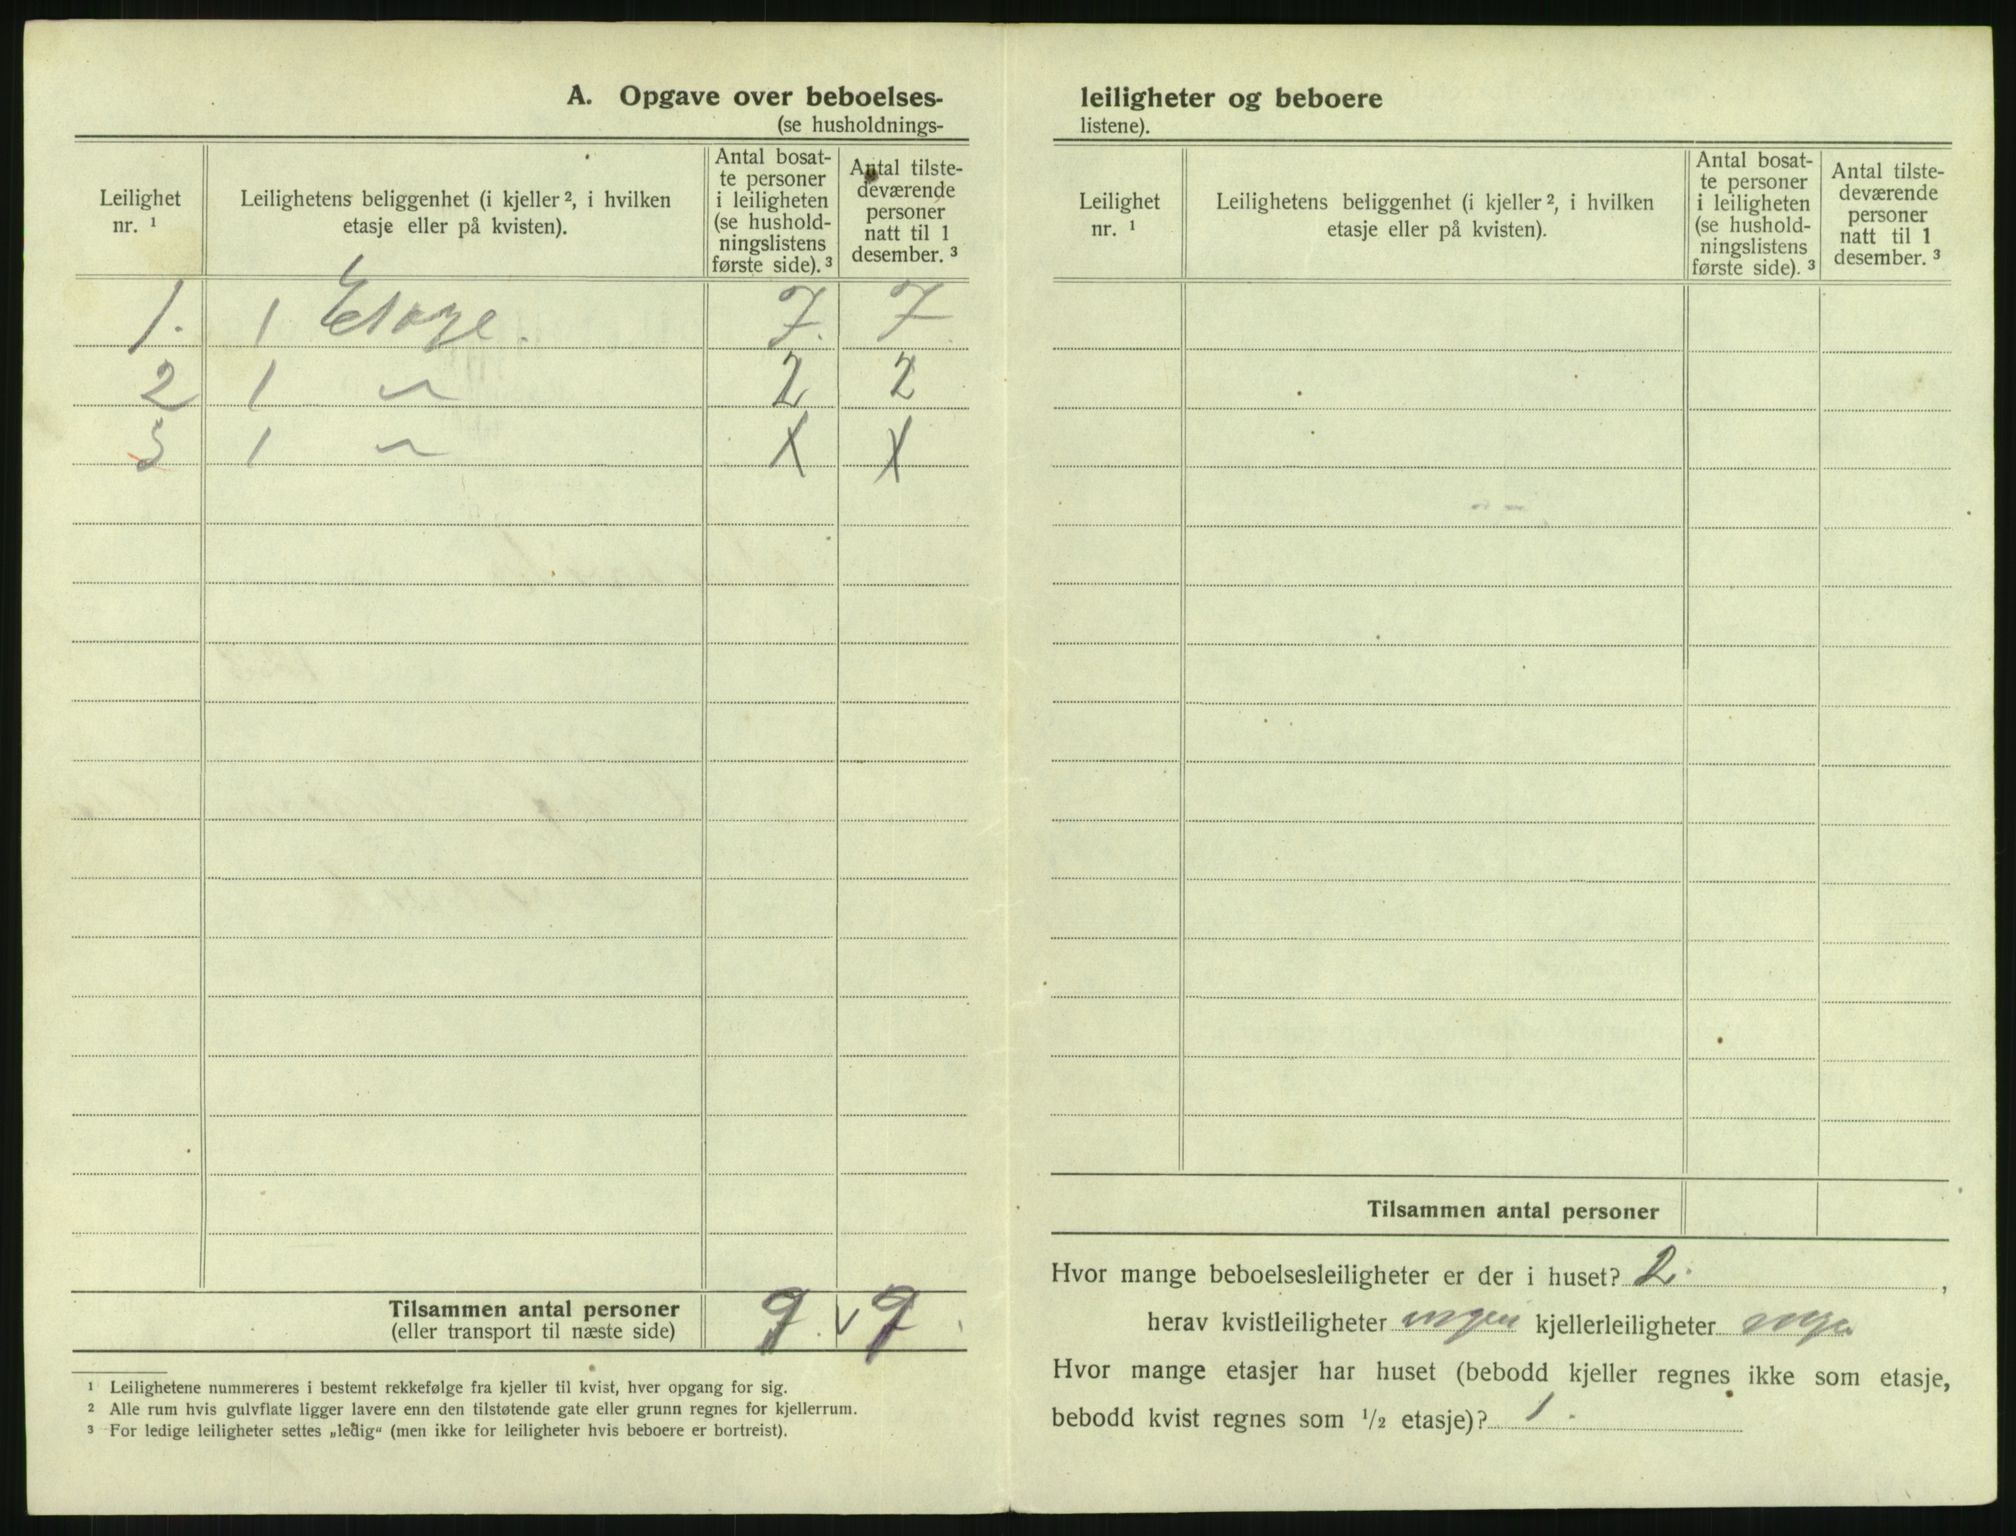 A. Opgave over beboelses-
(se husholdnings-
Leilighet
nr. ¹
Leilighetens beliggenhet (i kjeller ², i hvilken
etasje eller på kvisten).
Antal bosat-
te personer
i leiligheten
(se hushold-
ningslistens
første side). ³
Antal tilste-
deværende
personer
natt til 1
desember. ³
1. 1 Etage. 7. 7
2 1 〃 2 2
3 1 〃 X X
Tilsammen antal personer
(eller transport til næste side)
9. v 9
¹ Leilighetene nummereres i bestemt rekkefølge fra kjeller til kvist, hver opgang for sig.
² Alle rum hvis gulvflate ligger lavere enn den tilstøtende gate eller grunn regnes for kjellerrum.
³ For ledige leiligheter settes „ledig“ (men ikke for leiligheter hvis beboere er bortreist).
leiligheter og beboere
listene).
Leilighet
nr. ¹
Leilighetens beliggenhet (i kjeller ², i hvilken
etasje eller på kvisten).
Antal bosat-
te personer
i leiligheten
(se hushold-
ningslistens
første side). ³
Antal tilste-
deværende
personer
natt til 1
desember. ³
Tilsammen antal personer
Hvor mange beboelsesleiligheter er der i huset? 2. ,
herav kvistleiligheter ingen kjellerleiligheter ingen
Hvor mange etasjer har huset (bebodd kjeller regnes ikke som etasje,
bebodd kvist regnes som ¹/₂ etasje)? 1.